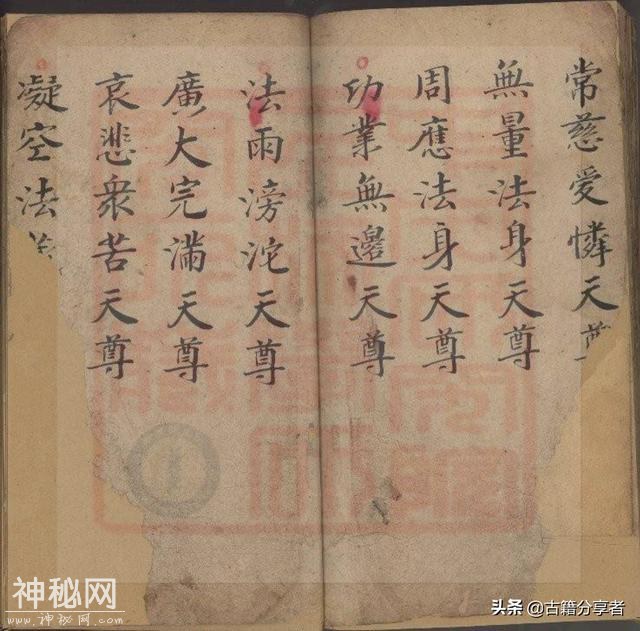 常慈愛憐天尊
無量法身天尊
周應法身天尊
功業無邊天尊
法雨滂沱天尊
廣大完滿天尊
哀悲衆苦天尊
凝空法
神秘网
www.神秘网.com
头条 @古籍分享者